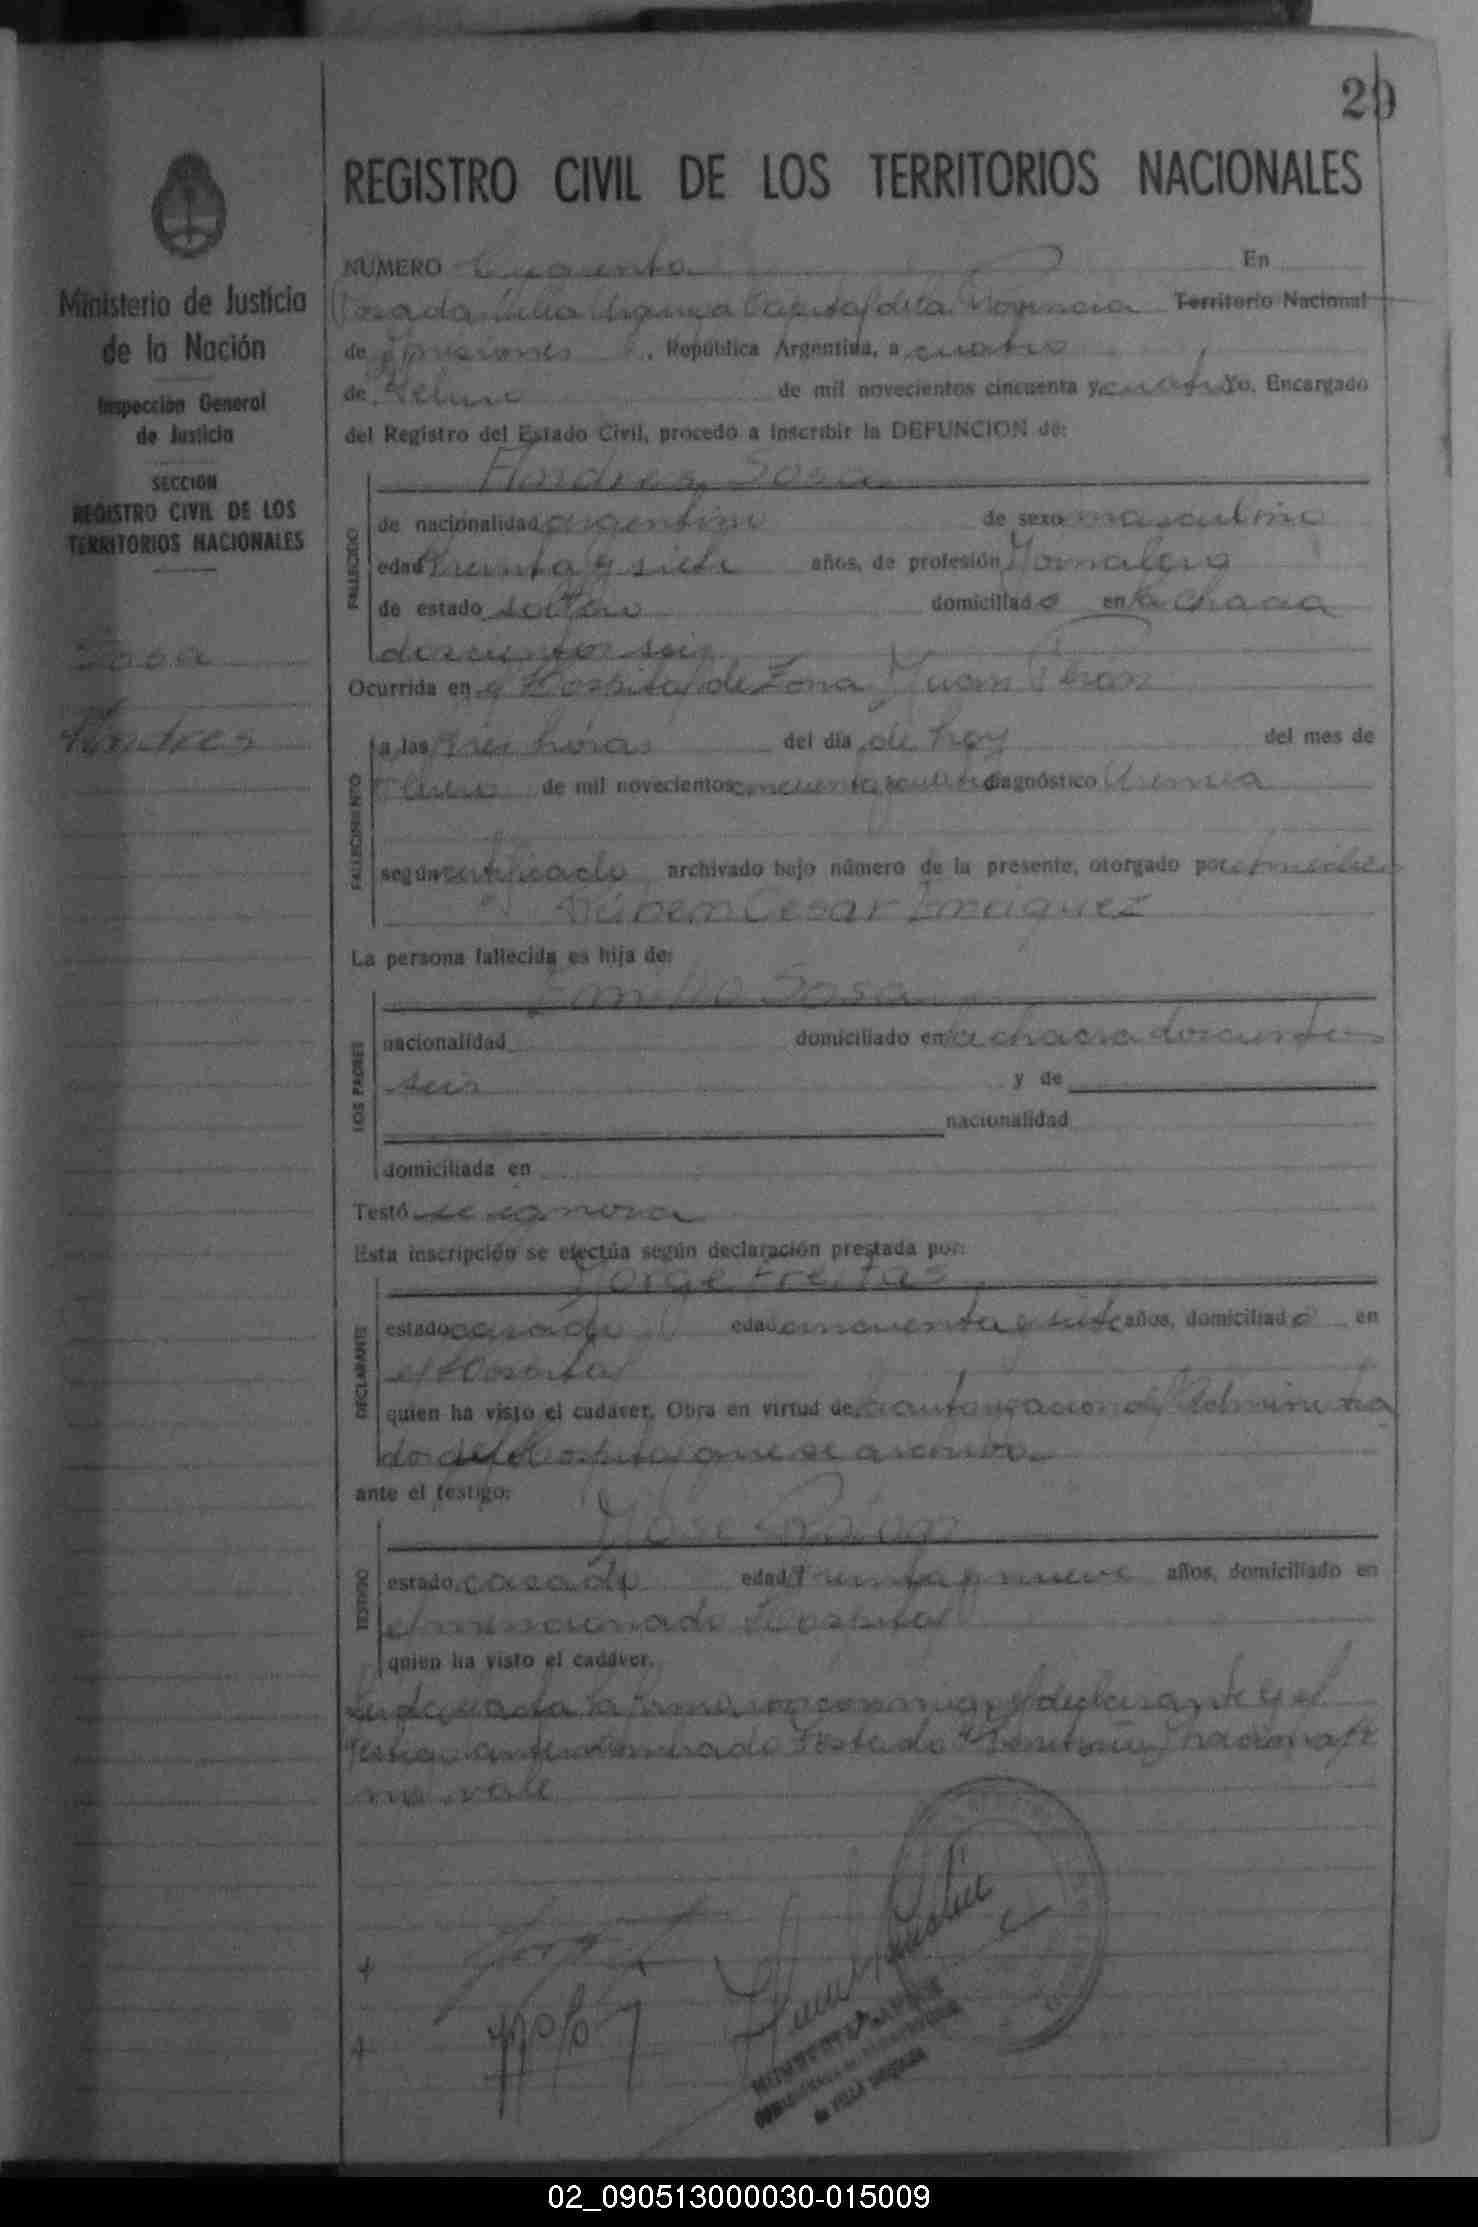 20
REGISTRO CIVIL DE LOS TERRITORIOS NACIONALES
Ministerio de Justicia
de la Nación
Inspección General
de Justicia
SECCION
REGISTRO CIVIL DE LOS
TERRITORIOS NACIONALES
Sosa
Andres
NUMERO En
Posadas Villa Urquiza Capital de la Provincia Territorio Nacional
de Misiones , República Argentina, a cuatro
de de mil novecientos cincuenta y cuatro Yo, Encargado
del Registro del Estado Civil, procedo a inscribir la DEFUNCION de:
Andres Sosa
FALLECIDO
de nacionalidad argentino de sexo masculino
edad treinta y siete años, de profesión Jornalero
de estado soltero domiciliado en la chacra
doscientos seis
Ocurrida en el Hospital de Zona Juan Perón
FALLECIMIENTO
a las tres horas del día de hoy del mes de
de mil novecientos cincuenta y cuatro diagnóstico Uremia
según certificado archivado bajo número de la presente, otorgado por el medico
Rúben Cesar Enriquez
La persona fallecida es hija de:
LOS PADRES
Emilio Sosa
nacionalidad domiciliado en la chacra doscientos
seis y de
nacionalidad
domiciliada en
Testó se ignora
Esta inscripción se efectúa según declaración prestada por:
DECLARANTE
Jorge Freitas
estado casado edad cincuenta y siete años, domiciliado en
el Hospital
quien ha visto el cadáver. Obra en virtud de la autorización del Administra
dor del Hospital que se archiva.
ante el testigo:
TESTIGO
José
estado casado edad treinta y nueve años, domiciliado en
el mencionado Hospital
quien ha visto el cadáver.
Leida el acta la firman conmigo el declarante y el
testigo antes nombrado Testado Territorio Nacional
no vale
de VILLA URQUIZA
02_090513000030-015009